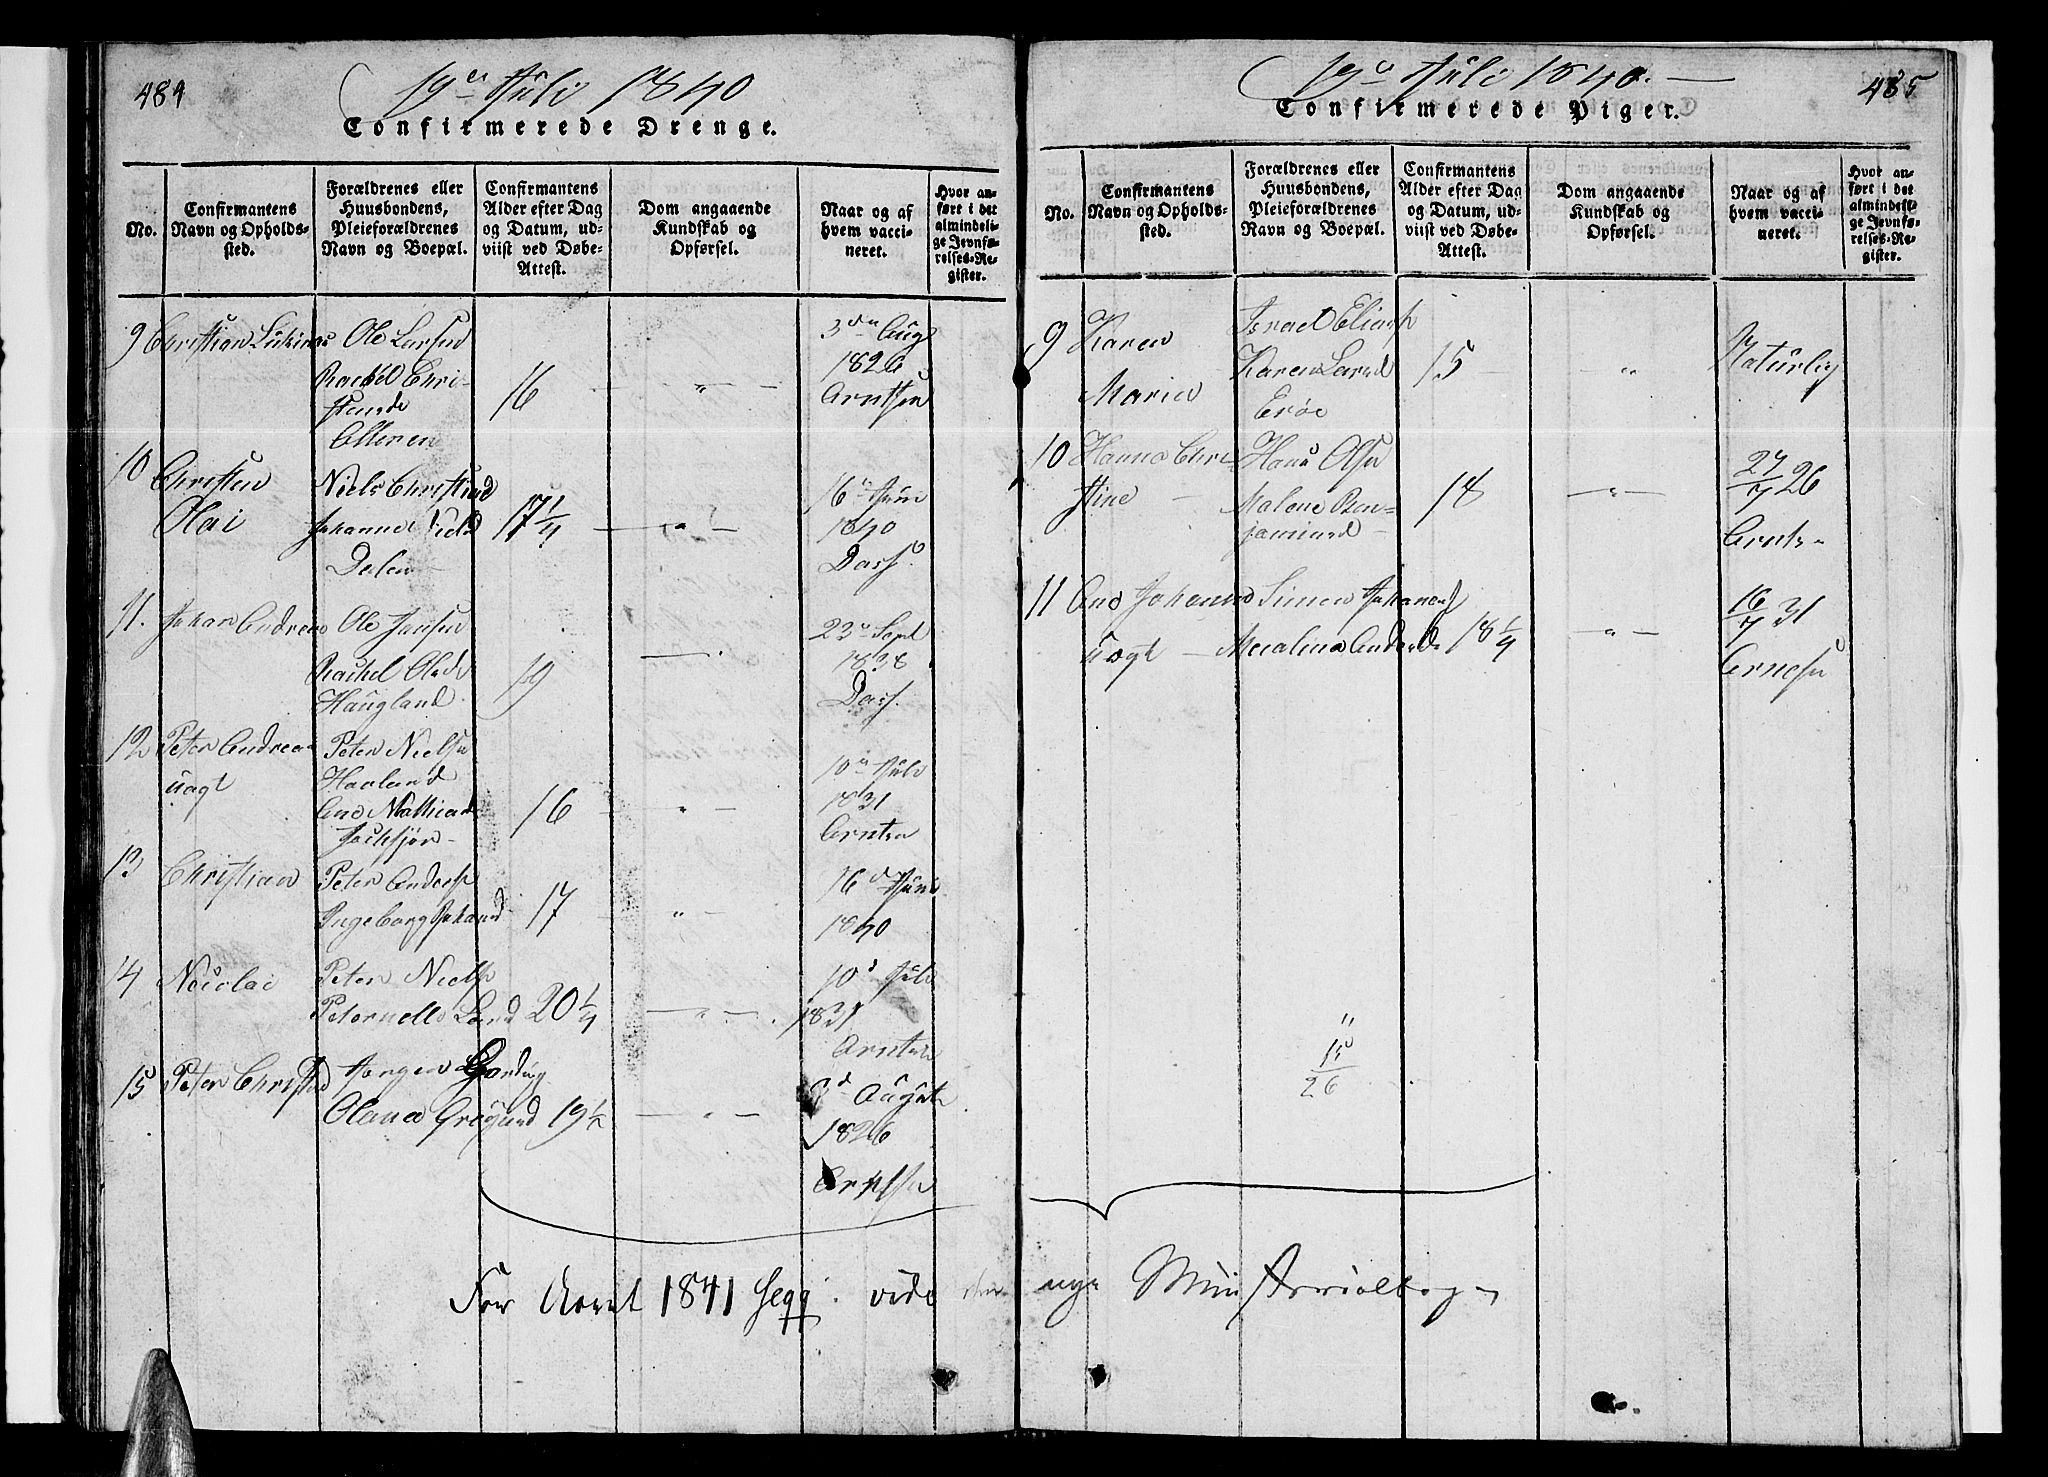 484
19de Juli 1840
Confirmerede Drenge.
No.
Confirmantens
Navn og Opholds-
sted.
Forældrenes eller
Huusbondens,
Pleieforældrenes
Navn og Boepæl.
Confirmantens
Alder efter Dag
og Datum, ud-
viist ved Døbe-
Attest.
Dom angaaende
Kundskab og
Opførsel.
Naar og af
hvem vacci-
neret.
Hvor an-
ført i det
almindeli-
ge Jevnfø-
relses-Re-
gister.
9 Christian Ole Larsen
Rachel Chri-
stensd
16 — „ —
3die Aug
1826
Arntsen
10 Christen
Olai
Niels Christians
Johanna Nielsd
Dalen
17 1/4 — „ —
16 Juni
1840
Dass.
11. Johan Andreas Ole Jansen
Rachel Olsd
Haugland
19
23 Sept
1838
Dass.
12 Peter Andreas
uægt
Peter Nielsen
Havland
Ane Mathiasd
16 „ —
10 Juli
1831
Arntsen
13 Christian Peter Anders
Ingeborg Johansd 17 — „ —
16d Juni
1840
14 Nicolai Peter Niels
Petornelle Larsd 20 1/4 — „ —
10d Juli
1831
Arntsen
15 Peter Christ Jørgen
Olava 19 1/2 — „ —
3d August
1826
Arntsen
For Aaret 1841 seqq: vide den nye Ministerialbog
19de Juli 1840. —
485
Confirmerede Piger.
No.
Confirmantens
Navn og Opholds-
sted.
Forældrenes eller
Huusbondens,
Pleieforældrenes
Navn og Boepæl.
Confirmantens
Alder efter Dag
og Datum, ud-
viist ved Døbe-
Attest.
Dom angaaende
Kundskab og
Opførsel.
Naar og af
hvem vacci-
neret.
Hvor an-
ført i det
almindeli-
ge Jevnfø-
relses-Re-
gister.
9 Karen
Maria
Israel Elias
Karen Larsd
Erøe
15 — „ Naturlig
10 Hanna Chri-
stine —
Hans Olsen
Malene Ben-
jaminsd —
18 — „ —
27/7 26
Arnts
11 Ane Johanna Simon Johans
uægt — Anders 18 1/4 — „ —
16/7 31
Arnesen
„
15
26